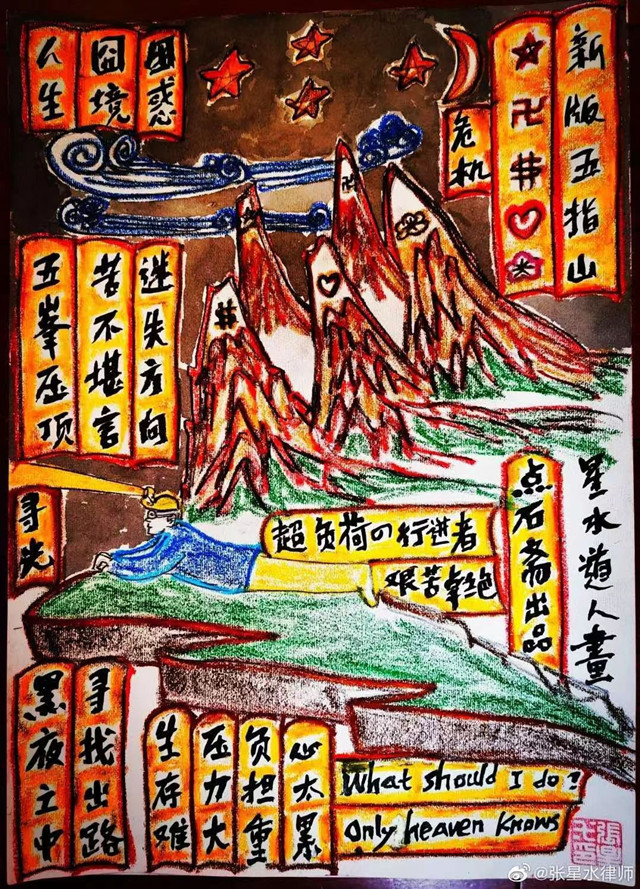 新版五指山
卍
$
危机
人生
囧境
困惑
五峯压顶
苦不堪言
迷失方向
$
卍
寻光
超负荷の行进者
艰苦卓绝
点石斋出品
星水道人畫
黑夜之中
寻找出路
生存难
压力大
负担重
心太累
What should I do?
Only heaven knows
@张星水律师